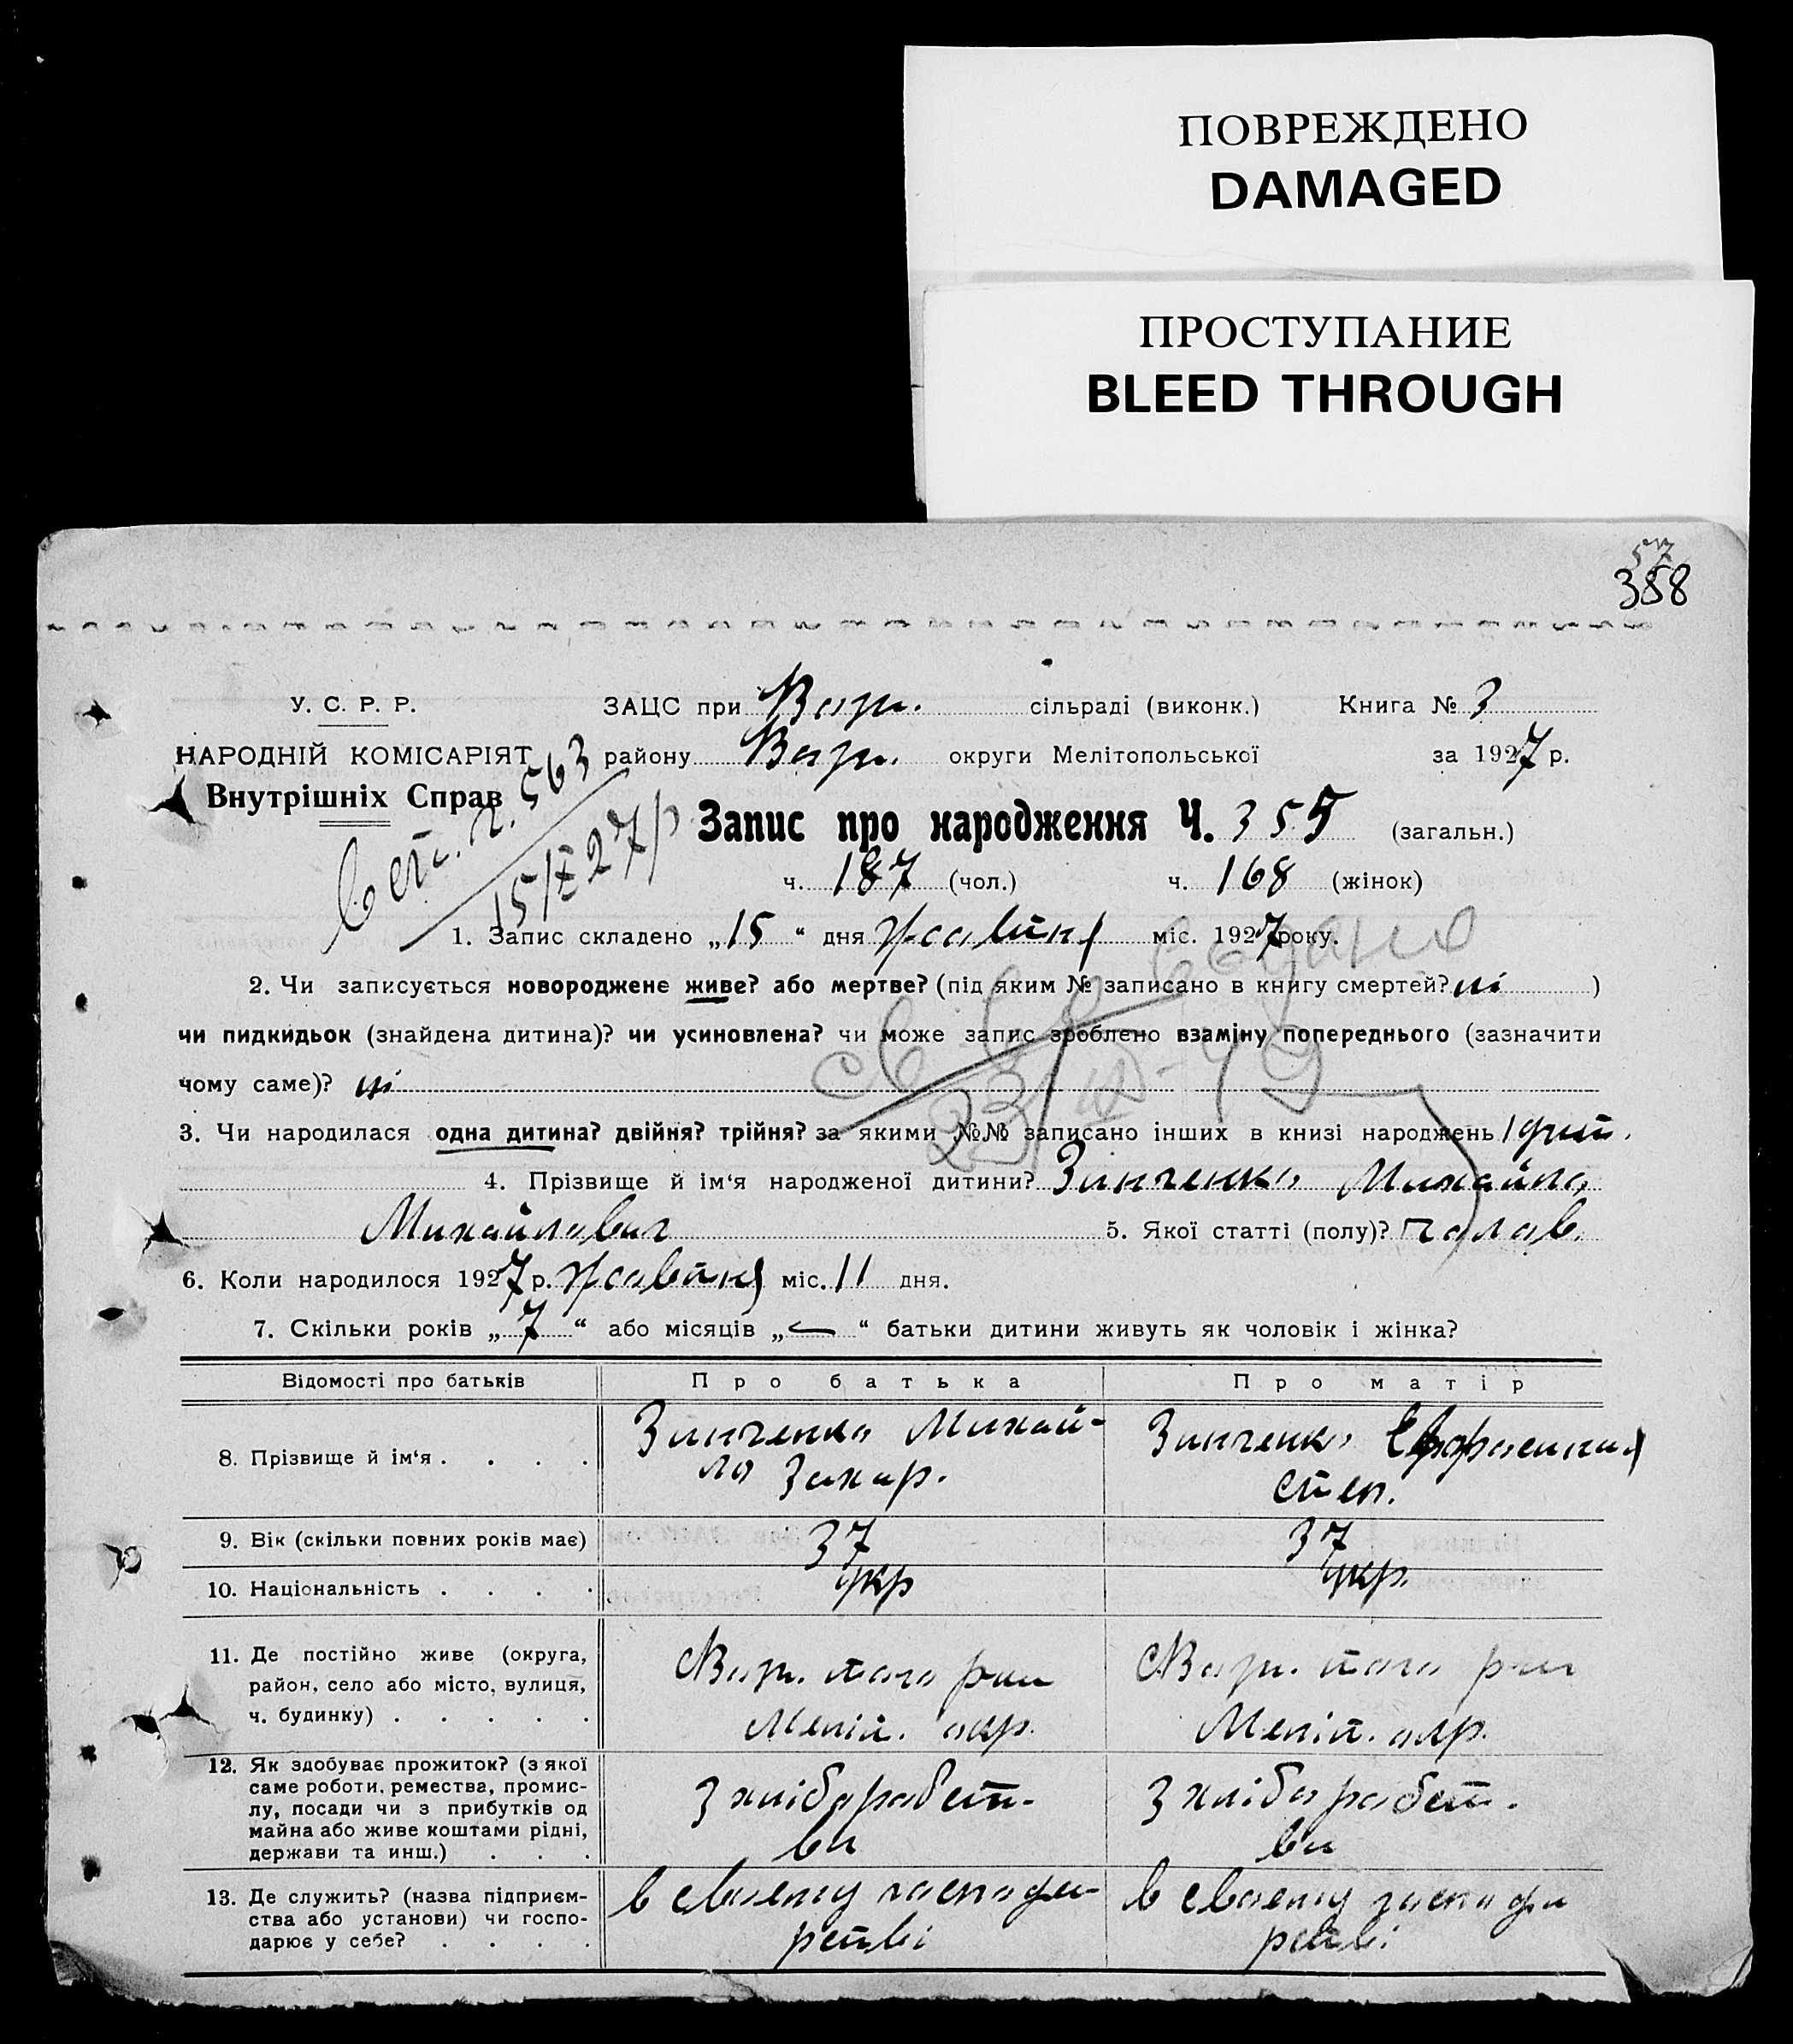 ПОВРЕЖДЕНО
DAMAGED
ПРОСТУПАНИЕ
BLEED THROUGH
57
358
У. С. Р. Р. ЗАЦС при сільраді (виконк.) Книга № 3
НАРОДНІЙ КОМІСАРІЯТ району округи Мелітопольської за 1927 р.
Внутрішніх Справ
563
Запис про народження Ч. 355 (загальн.)
15/IX 27 р
ч. 187 (чол.) ч. 168 (жінок)
1. Запис складено „15“ дня жовтня міс. 1927 року.
видано
2. Чи записується новороджене живе? або мертве? (під яким № записано в книгу смертей? ні )
чи пидкидьок (знайдена дитина)? чи усиновлена? чи може запис зроблено взаміну попереднього (зазначити
чому саме)? ні
3. Чи народилася одна дитина? двійня? трійня? за якими №№ записано інших в книзі народжень 1 дит.
4. Прізвище й ім‘я народженої дитини? Зинченко Михайло
Михайлович 5. Якої статті (полу)? чолов.
6. Коли народилося 1927 р. жовтня міс. 11 дня.
7. Скільки років „7“ або місяців „—“ батьки дитини живуть як чоловік і жінка?
Відомості про батьків Про батька Про матір
8. Прізвище й ім‘я . . . . Зинченко Михай-
ло Захар. Зинченко
Степ.
9. Вік (скільки повних років має) 37 37
10. Національність . . . . укр укр.
11. Де постійно живе (округа,
район, село або місто, вулиця,
ч. будинку) . . . . .
того рай
Меліт. окр.
того рай
Меліт. окр.
12. Як здобуває прожиток? (з якої
саме роботи, ремества, промис-
лу, посади чи з прибутків од
майна або живе коштами рідні,
держави та инш.) . . .
З хліборобст-
ва
З хліборобст.
ва
13. Де служить? (назва підприєм-
ства або установи) чи госпо-
дарює у себе? . . . .
в своему господа-
рстві
в своему господа
рстві